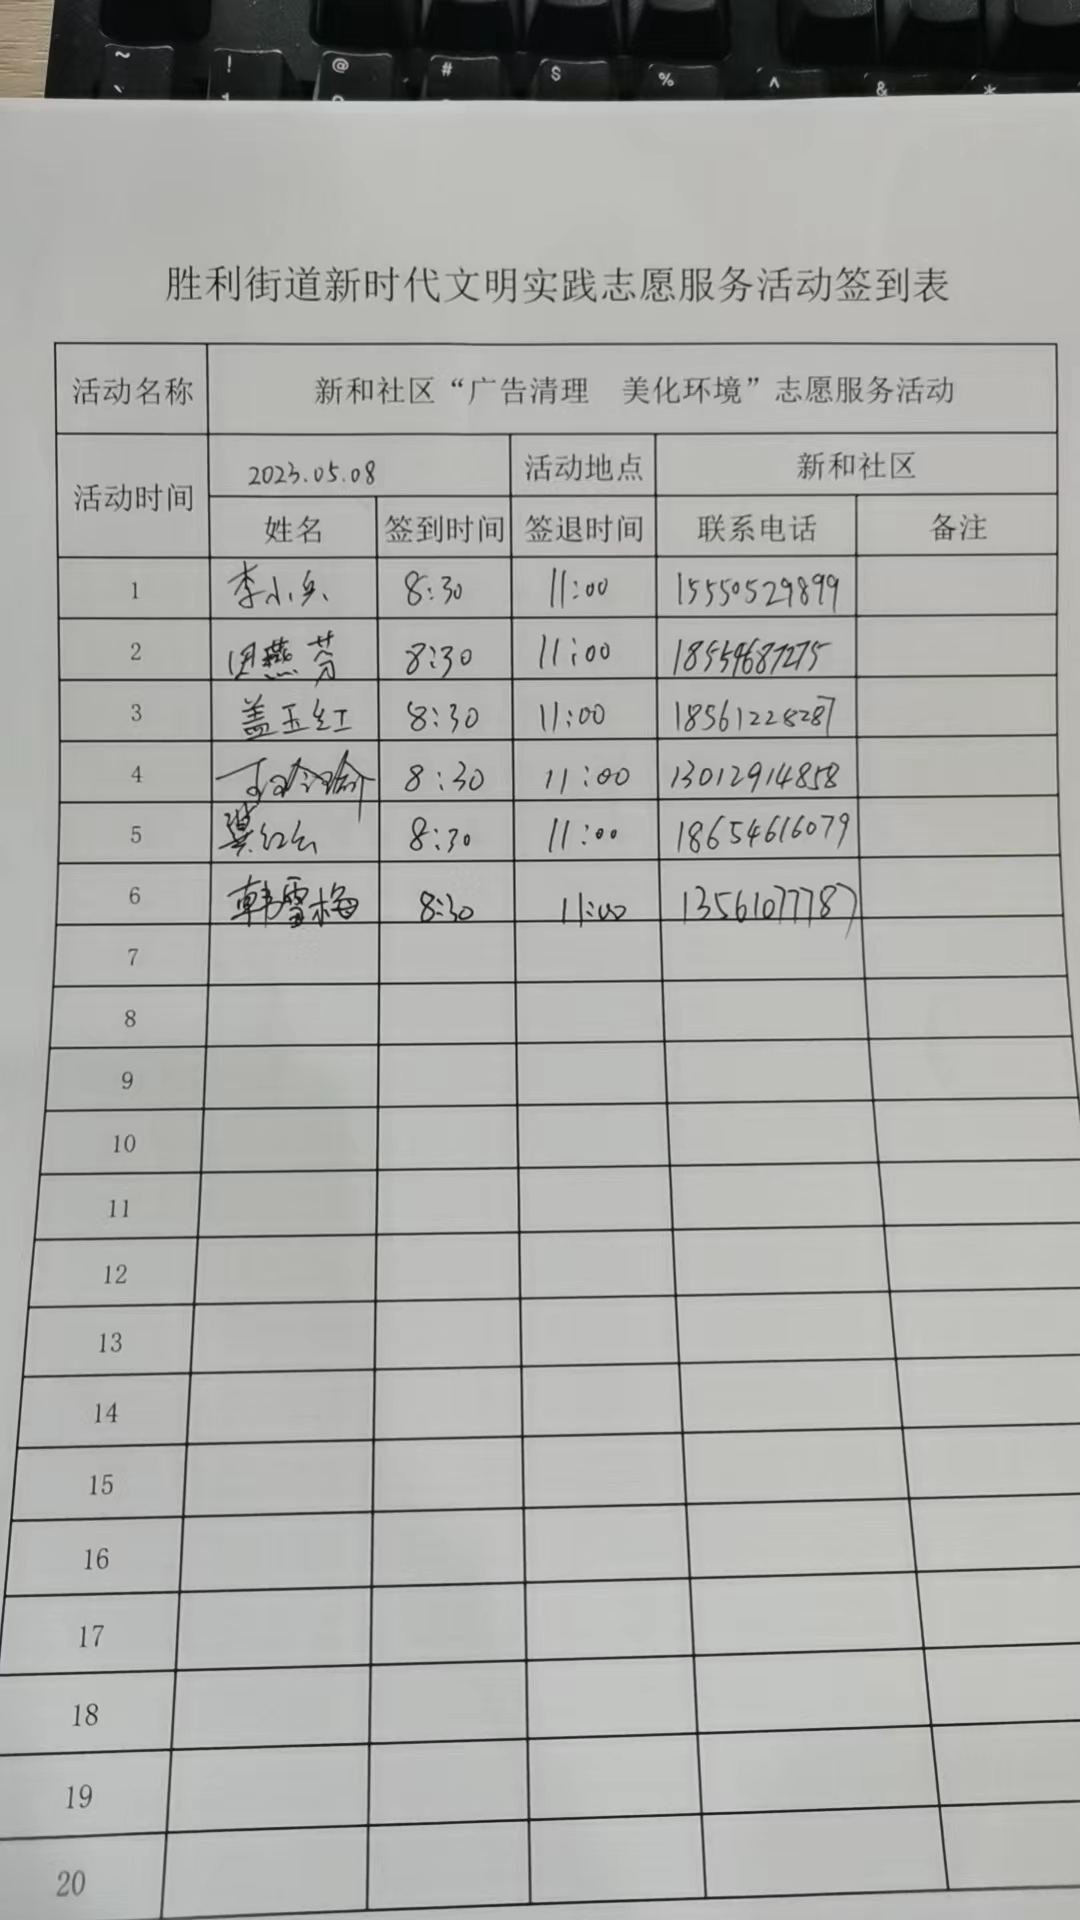 ~ ! @ # $ % ^ & *
胜利街道新时代文明实践志愿服务活动签到表
活动名称 新和社区“广告清理 美化环境”志愿服务活动
活动时间 2023.05.08 活动地点 新和社区
姓名 签到时间 签退时间 联系电话 备注
1 李小兵 8:30 11:00 15550529899
2 燕芬 8:30 11:00 18554687275
3 盖玉红 8:30 11:00 18561228287
4 8:30 11:00 13012914858
5 红云 8:30 11:00 18654616079
6 韩雪梅 8:30 11:00 13561077787
7
8
9
10
11
12
13
14
15
16
17
18
19
20